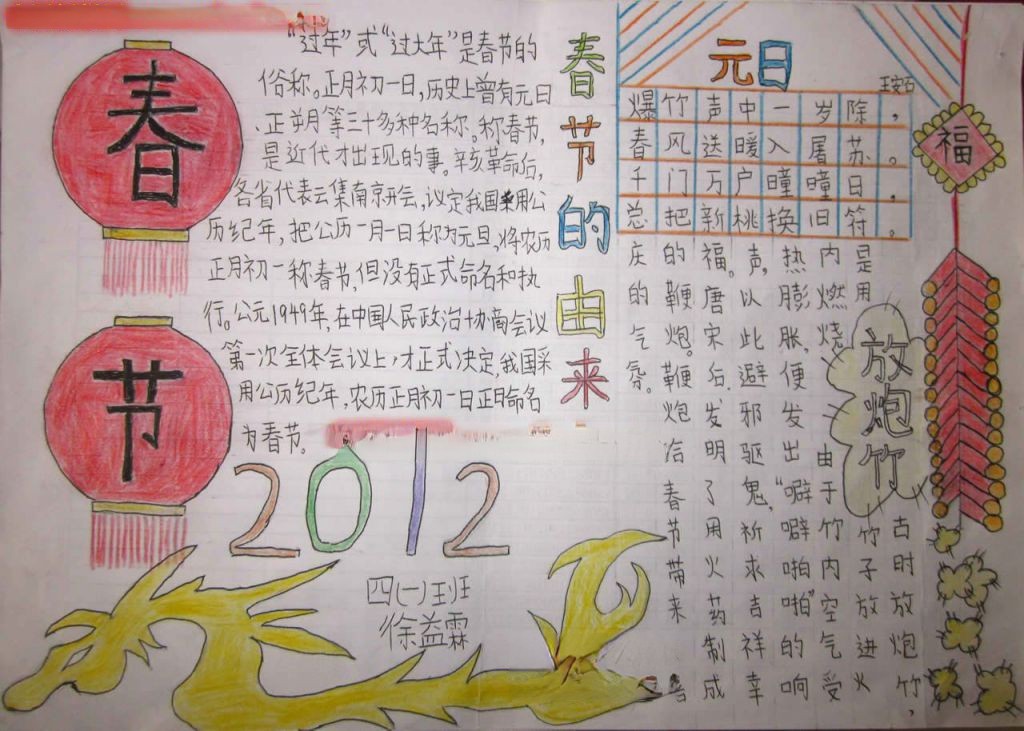 春
节
春节的由来
“过年”或“过大年”是春节的
俗称。正月初一日,历史上曾有元日
、正月等三十多种名称。称春节,
是近代才出现的事。辛亥革命后,
各省代表云集南京开会,议定我国采用公
历纪年,把公历一月一日称为元旦,将农历
正月初一称春节,但没有正式命名和执
行。公元1949年,在中国人民政治协商会议
第一次全体会议上,才正式决定,我国采
用公历纪年,农历正月初一日正月命名
为春节。
2012
四(一)班
徐益霖
元日
王安石
爆竹声中一岁除,
春风送暖入屠苏。
千门万户曈曈日,
总把新桃换旧符。
福
放炮竹
古时放炮竹,
是用竹子放进火
内燃烧,由于竹内空气受
热膨胀,便发出“噼噼啪啪”的响
声,以此避邪驱鬼,祈求吉祥幸
福。唐宋后,发明了用火药制成
的鞭炮。鞭炮给春节带来
庆的气氛。